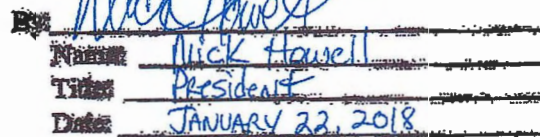 By: Nick Howell
Name: Nick Howell
Title: President
Date: JANUARY 22, 2018